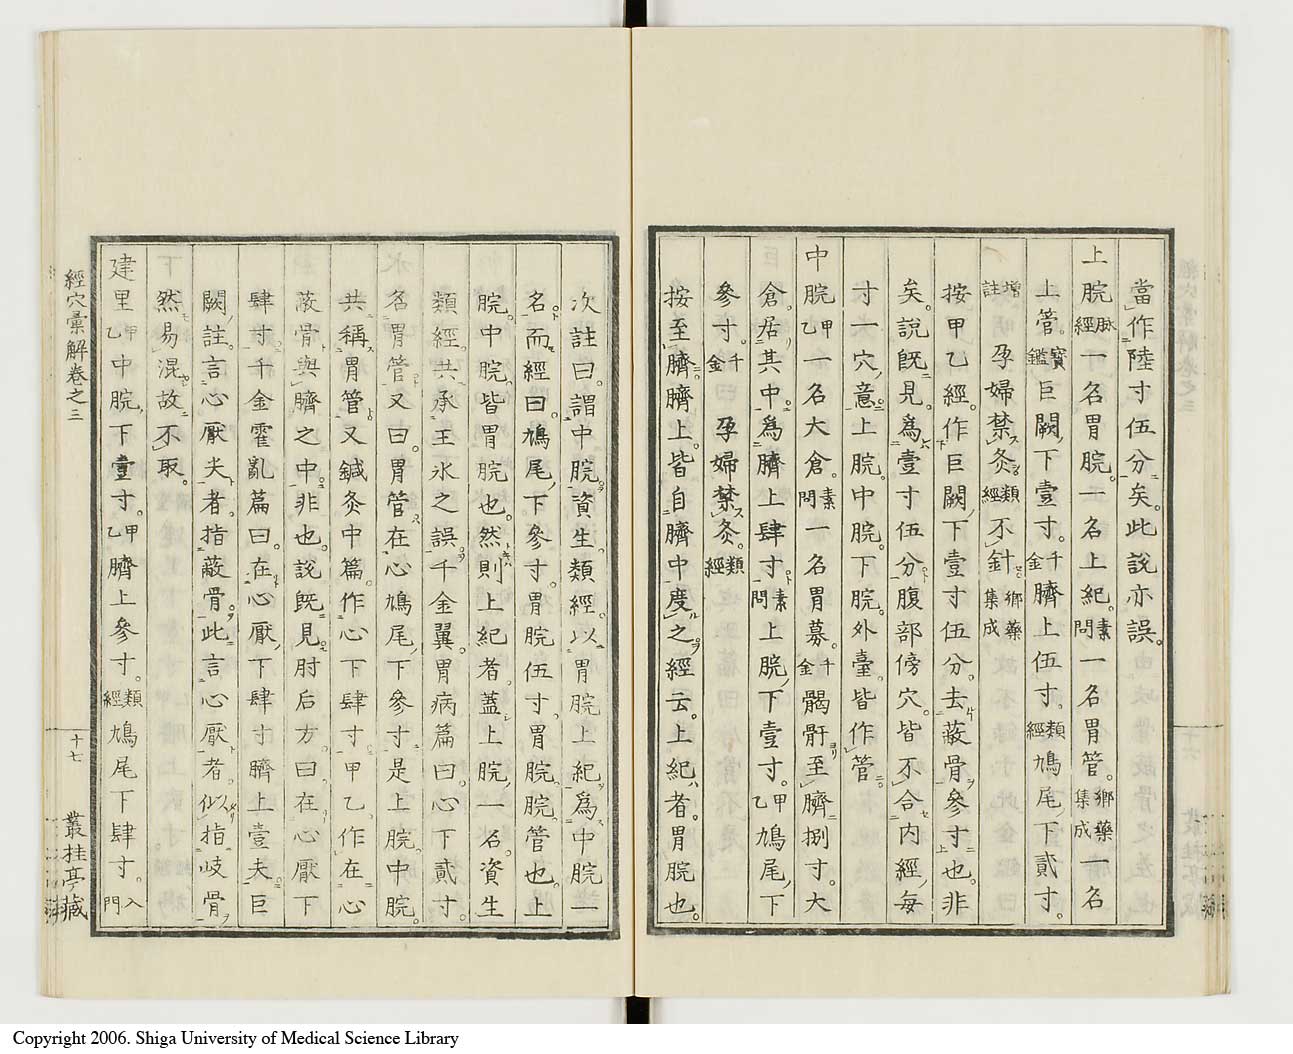 當作陸寸伍分矣。此說亦誤。
上脘脉經一名胃脘。一名上紀。素問一名胃管。鄉藥集成一名
上管。寶鑑巨闕下壹寸。千金臍上伍寸。類經鳩尾下貳寸。
增註孕婦禁灸類經不針鄉藥集成
按甲乙經。作巨闕下壹寸伍分。去蔽骨參寸也。非
矣。說既見。爲壹寸伍分。腹部傍穴。皆不合内經。每
寸一穴意。上脘。中脘。下脘。外臺。皆作管。
中脘甲乙一名大倉。素問一名胃募。千金髃骬至臍捌寸。大
倉。居其中。爲臍上肆寸。素問上脘下壹寸。甲乙鳩尾下
參寸。千金孕婦禁灸。類經
按至臍。臍上。皆自臍中度之。經云。上紀者。胃脘也。
次註曰。謂中脘。資生。類經。以胃脘上紀。爲中脘一
名。而經曰。鳩尾下參寸。胃脘伍寸。胃脘。脘管也。上
脘。中脘。皆胃脘也。然則上紀者。蓋上脘一名。資生
類經。共承王氷之誤。千金翼。胃病篇曰。心下貳寸。
名胃管。又曰。胃管在心鳩尾下參寸。是上脘中脘。
共稱胃管。又鍼灸中篇。作心下肆寸。甲乙。作在心
蔽骨與臍之中。非也。說既見。肘后方。曰。在心厭下
肆寸。千金霍亂篇曰。在心厭下肆寸臍上壹夫。巨
闕註。言心厭夫者。指蔽骨。此言心厭者。似指岐骨
然。易混。故不取。
建里甲乙中脘下壹寸。甲乙臍上參寸。類經鳩尾下肆寸。入門
經穴彙解卷之三
十七
叢桂亭藏
Copyright 2006. Shiga University of Medical Science Library